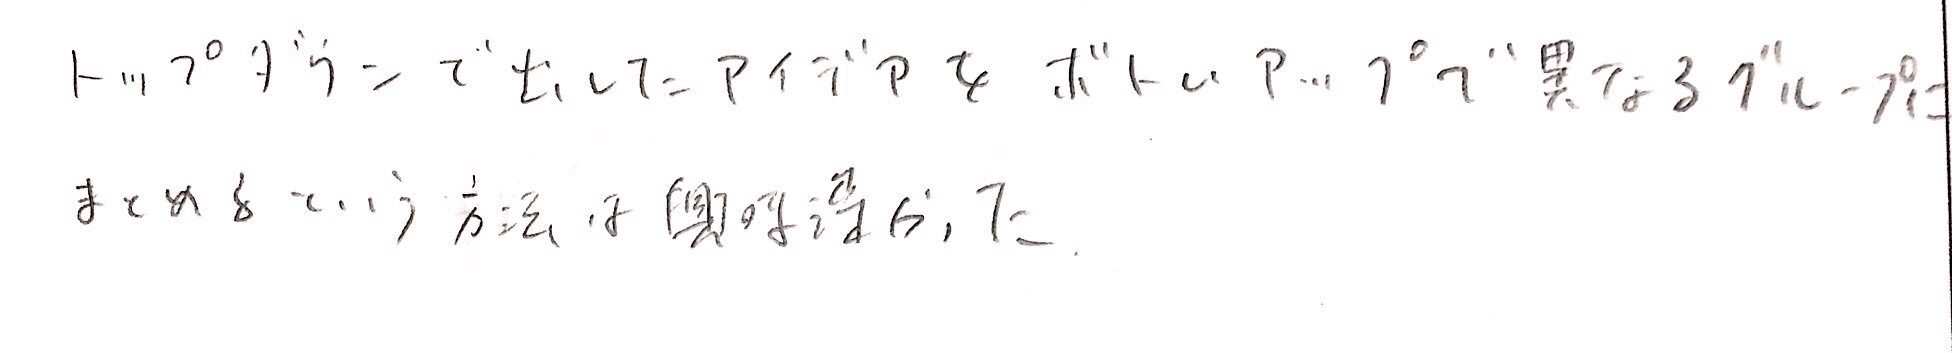 トップダウンで出したアイデアを ボトムアップで異なるグループに
まとめるという方法は興味深かった.